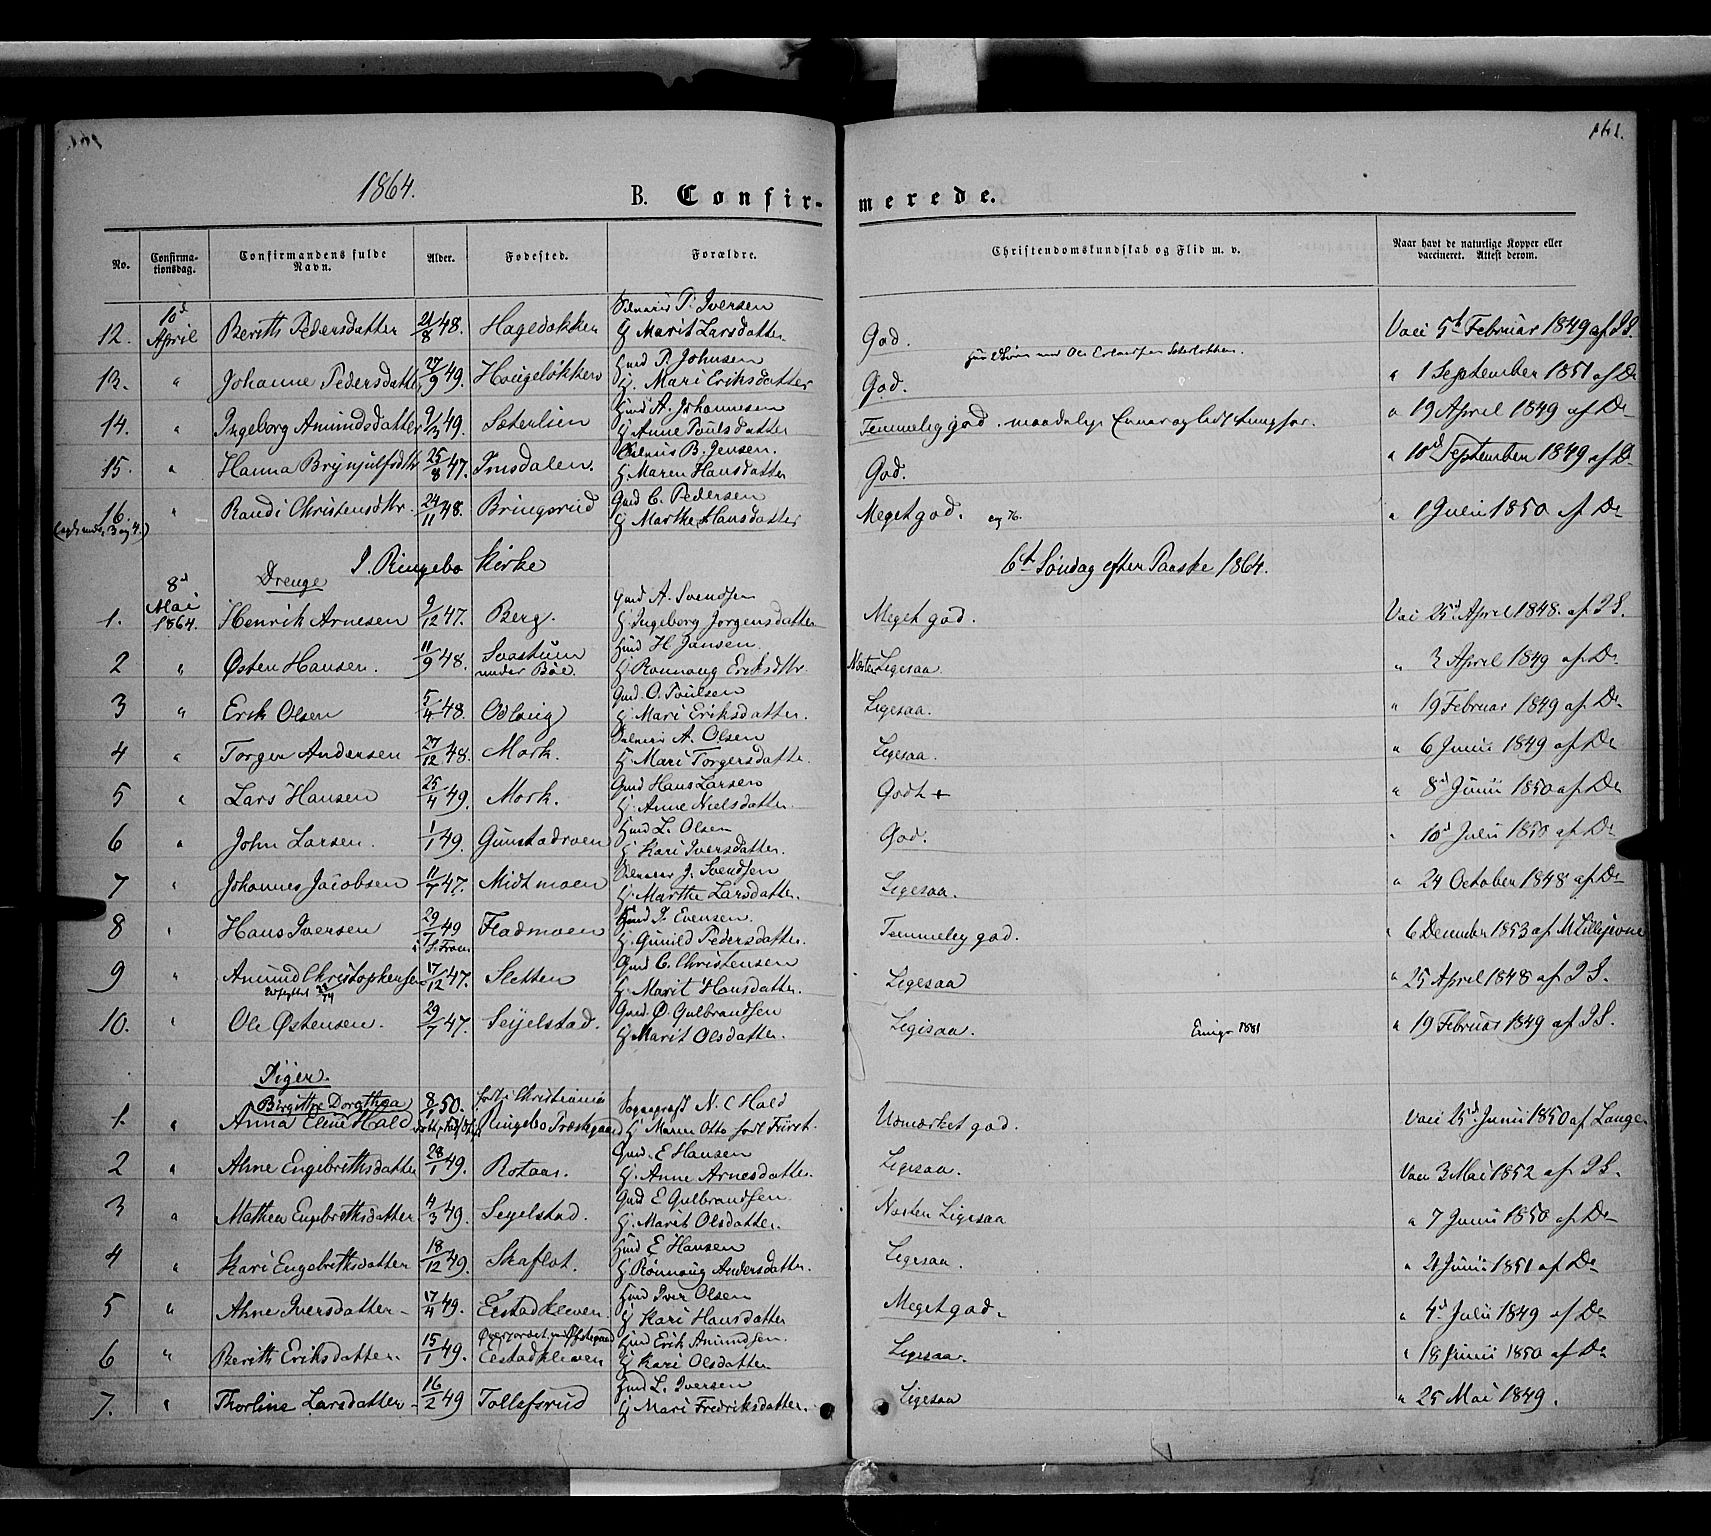 161.
1864.
B. Confirmerede.
No. Confirmationsdag. Confirmandens fulde Navn. Alder. Fødested. Forældre. Christendomskundskab og Flid m. v. Naar havt de naturlige Kopper eller vaccineret. Attest derom.
12. 10d April Berith Pedersdatter 21/8 48. Hagedokken P. Iversen H Marit Larsdatter God. Vaci 5t Februar 1849 af I S.
13. " Johanne Pedersdatter 27/9 49. Haugeløkken Hmd P. Johnsen H. Mari Eriksdatter God. " 1 September 1851 af Do
14. " Ingeborg Amundsdatter 9/3 49. Sæterlien Hmd A. Johannesen H Anne Poulsdatter Temmelig god. " 19 April 1849 af Do
15. " Hanna Brynjulfsdtr 25/8 47. Imsdalen. B. Jensen. H Maren Hansdatter God. " 10d September 1849 af Do
16. " Randi Christensdtr. 24/11 48. Bringsrud Gmd C. Pedersen H Marthe Hansdatter Meget god. " 1 Juli 1850 af Do
I Ringebo Kirke 6te Søndag efter Paaske 1864.
Drenge
1. 8d Mai 1864. Henrik Arnesen 9/12 47. Berg. Gmd A. Svendsen H Ingeborg Jørgensdatter Meget god. Vaci 25d April 1848. af I S.
2 " Østen Hansen. 11/9 48. under Bøe. Hmd H Jansen H Rønnaug Eriksdtr. Næsten Ligesaa. " 3 April 1849 af Do
3 " Erik Olsen 5/4 48. Odlaug Gmd. O. Poulsen H. Mari Eriksdatter. Ligesaa. " 19 Februar 1849 af Do
4 " Torger Andersen 27/12 48. Mork. A. Olsen H. Mari Torgersdatte. Ligesaa. " 6 Junii 1849 af Do
5 " Lars Hansen 25/4 49. Mork. Gmd Hans Larsen H. Anne Nielsdatter Godt + " 8d Junii 1850 af Do
6 " John Larsen. 1/1 49. Gunstadroen Hmd L. Olsen H Kari Iversdatter. God. " 10d Julii 1850 af Do
7 " Johannes Jacobsen 11/7 47. Midtmoen J. Svendsen H. Marthe Larsdatter Ligesaa. " 24 October 1848 af Do
8 " Hans Iversen 29/7 49 i S. Fron Fladmoen Hmd I. Evensen. H. Gunild Pedersdatter. Temmelig god. " 6 December 1853 af
9 " Amund Christophersen 17/12 47. Sletten Gmd C. Christensen H. Marit Hansdatter. Ligesaa " 25 April 1848 af I S.
10. " Ole Østensen. 29/7 47. Seijelstad. Gmd. Ø. Gulbrandsen H Marit Olsdatter. Ligesaa. Emigr 1881 " 19 Februar 1849 af I S.
Piger.
1. " Birgitte Dorothea Anna Eline Hald 8/1 50. født i Christiania Ringebo Præstegaard Sognepræst N. C Hald H Maren Otto født Fürst. Udmærket god. Vaci 25d Junii 1850 af Lange
2 " Ahne Engebrithsdatter 28/1 49. Rotaas. Gmd. E Hansen H. Anne Arnesdatter. Ligesaa. Vaci 3 Mai 1852 af I S.
3 " Mathea Engebrethsdatter 4/3 49. Seijelstad. Gmd E Gulbrandsen. H. Marit Olsdatter Næsten Ligesaa " 7 Junii 1850 af Do
4 " Kari Engebrethsdatter 18/12 49. Skaflot. Hmd E Hansen H. Rønnaug Andersdatter. Ligesaa. " 21 Junii 1851 af Do
5 " Ahne Iversdatter 17/4 49. Elstadkleven Hmd Iver Olsen H Kari Hansdatter Meget god. " 4d Julii 1849 af Do
6 " Berith Eriksdatter. 15/1 49. Elstadkleven Hmd Erik Amundsen. H Kari Olsdatter Ligesaa. " 18 Junii 1850 af Do
7. " Thorline Larsdatter 16/2 49 Tollefsrud Hmd L. Iversen H Mari Fredriksdatter. Ligesaa " 25 Mai 1849.